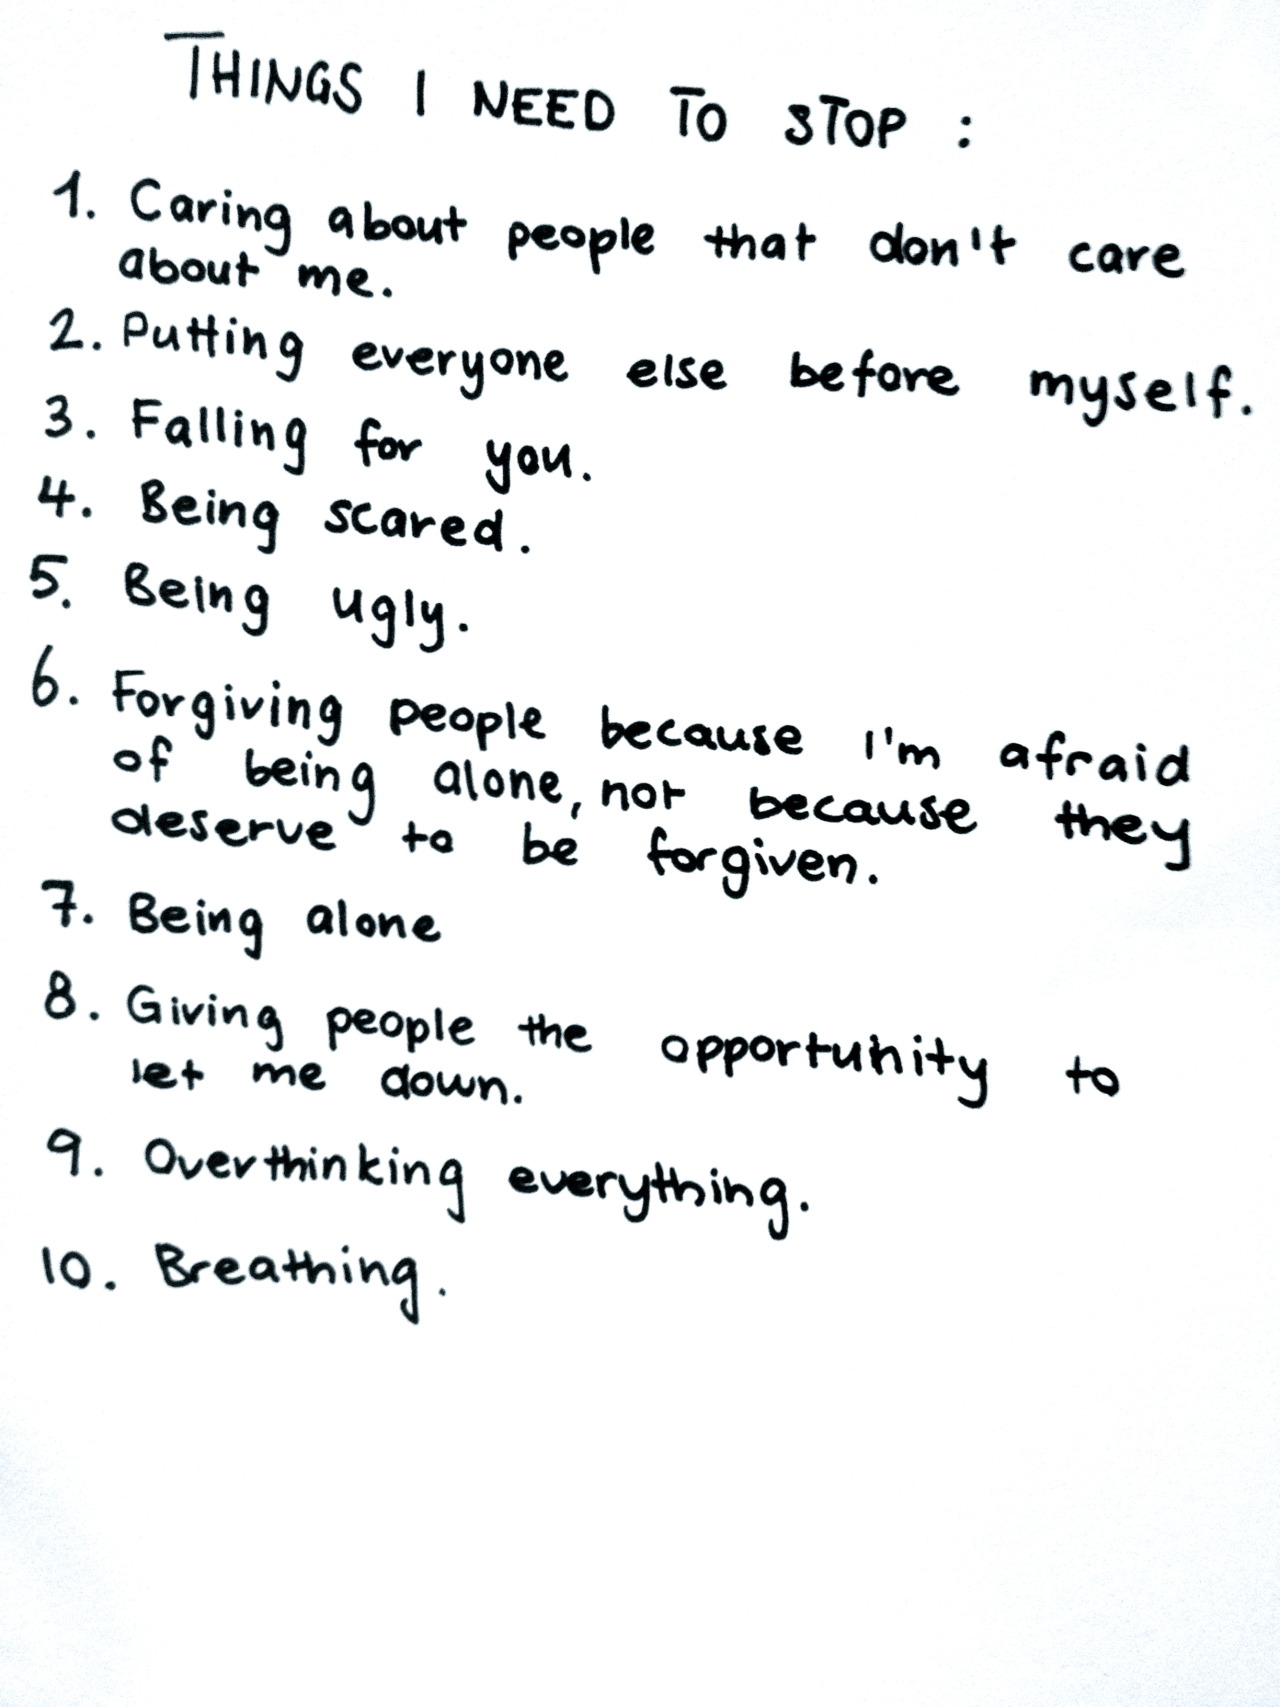 THINGS I NEED TO STOP :
1. Caring about people that don't care
about me.
2. Putting everyone else before myself.
3. Falling for you.
4. Being scared.
5. Being ugly.
6. Forgiving people because I'm afraid
of being alone, not because they
deserve to be forgiven.
7. Being alone
8. Giving people the opportunity to
let me down.
9. Overthinking everything.
10. Breathing.